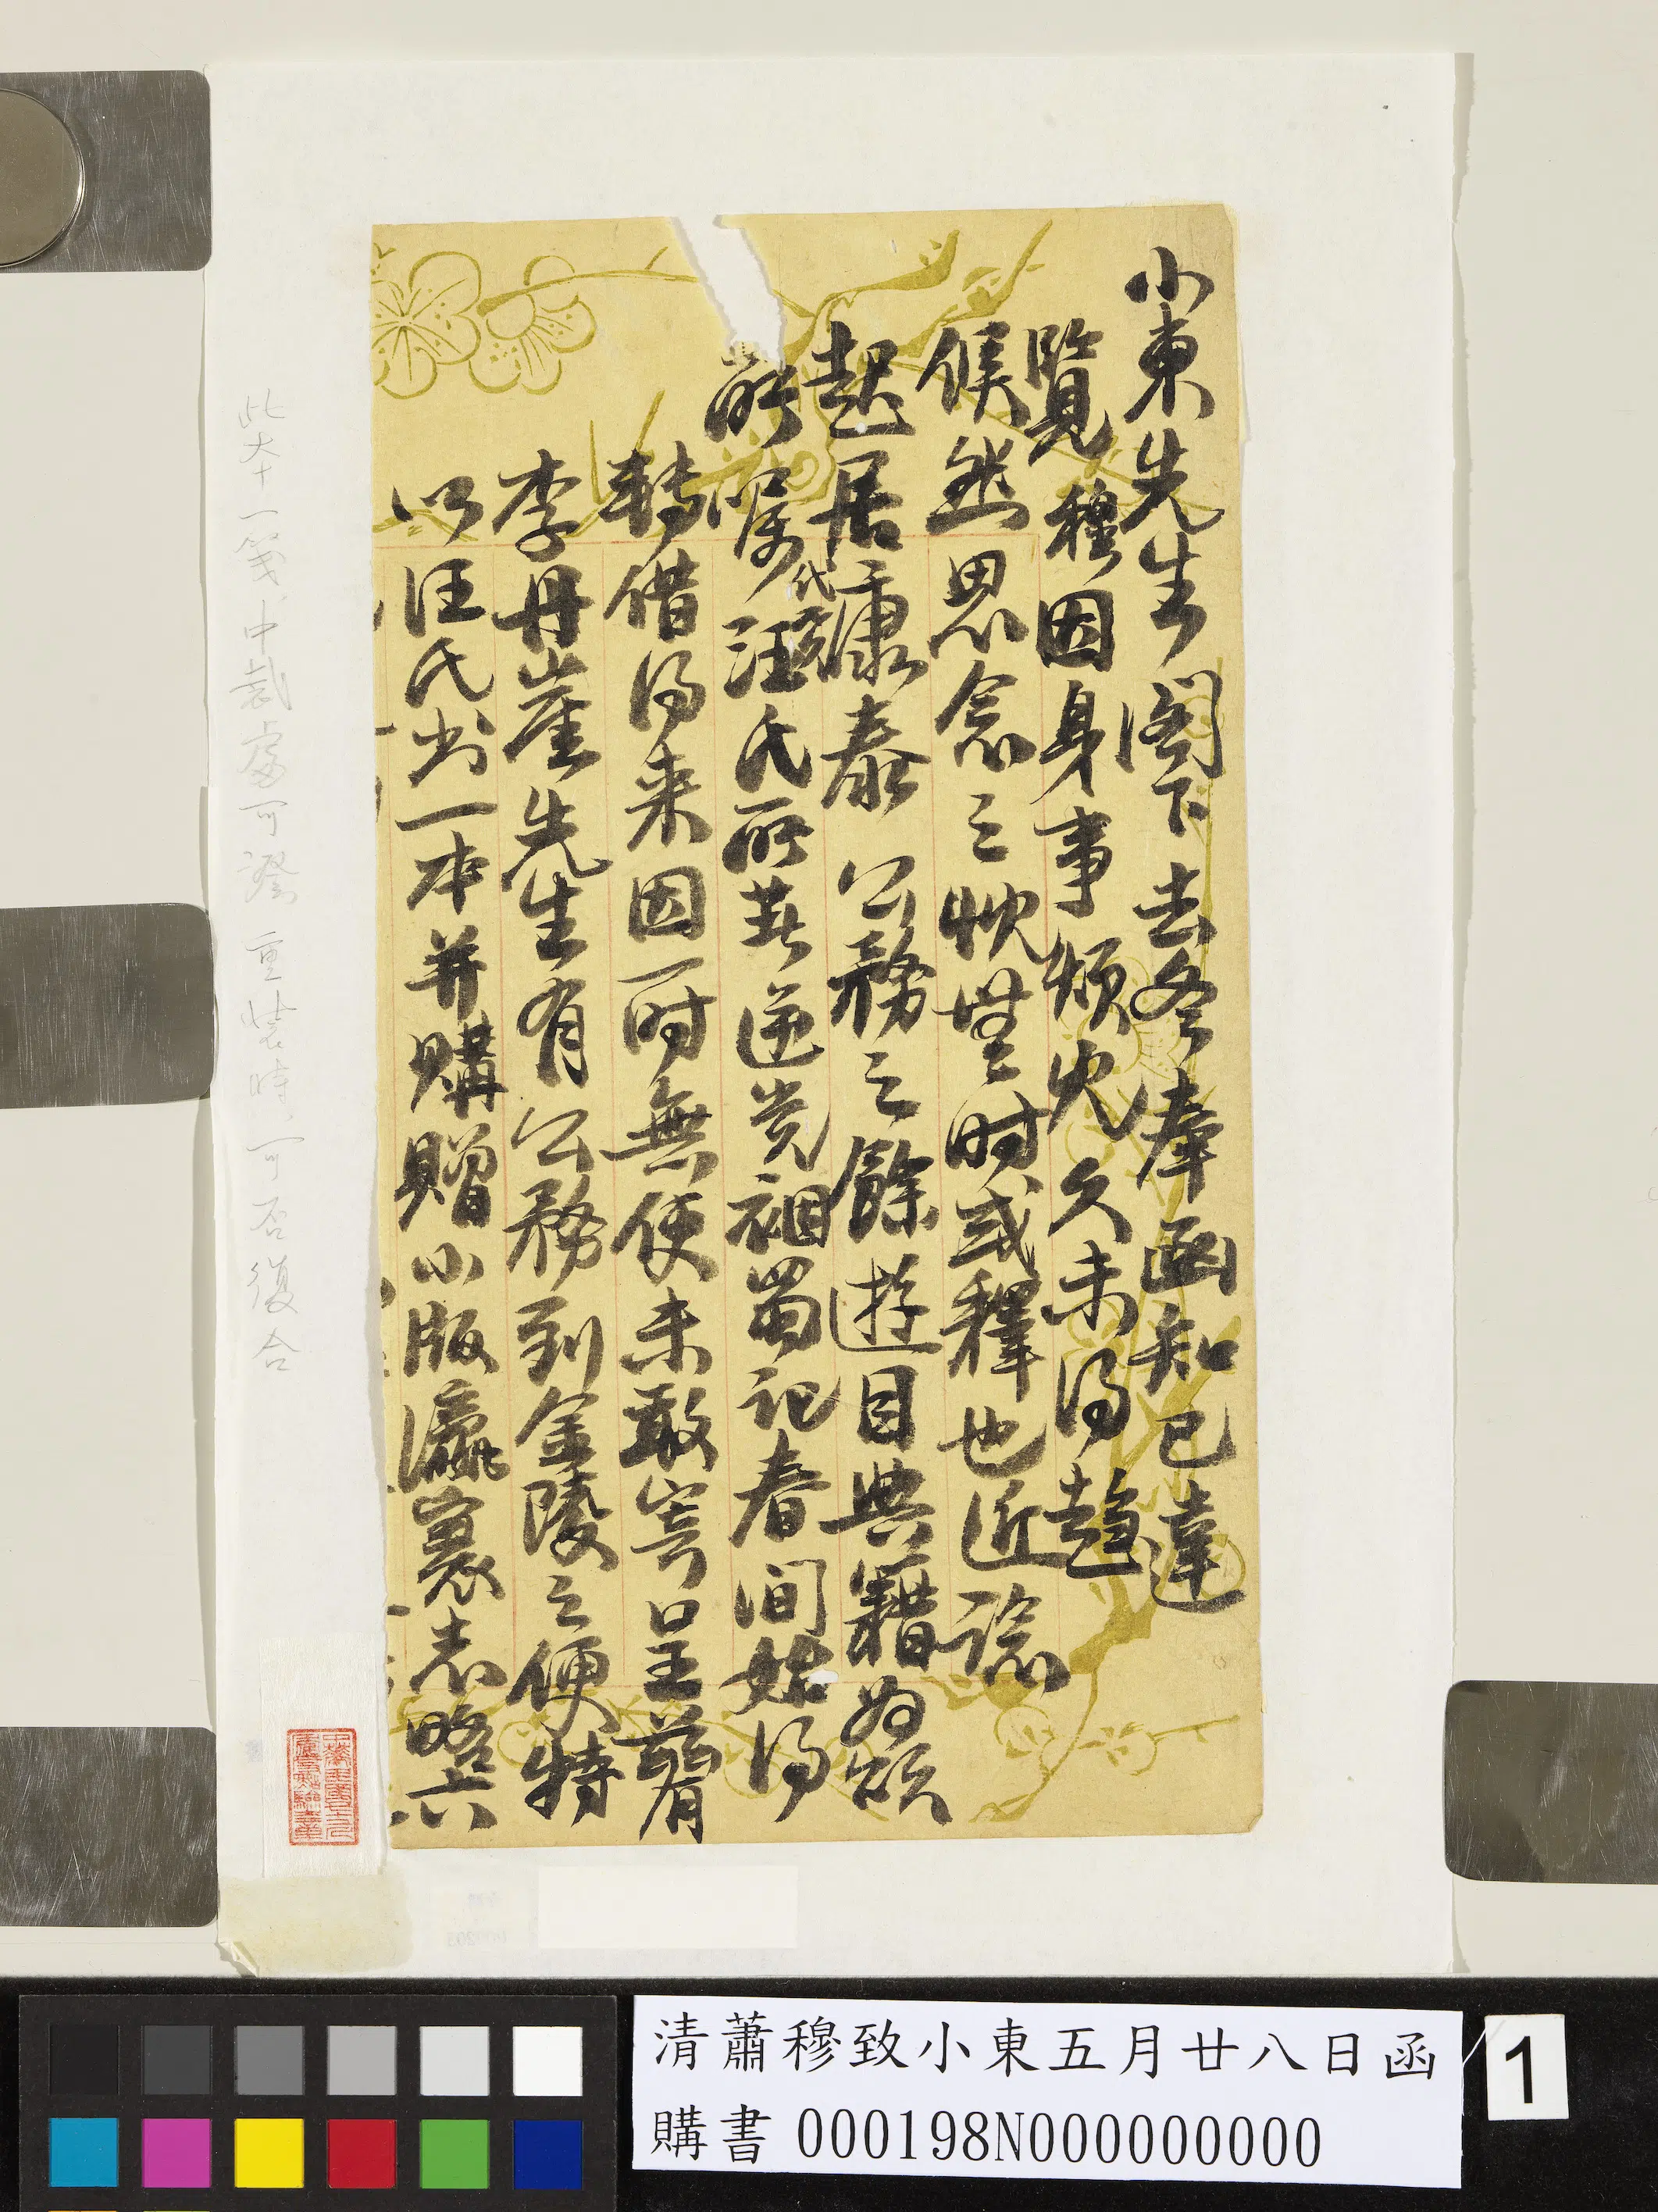 小東先生閣下去冬奉函知已達
覽穆因身事煩冗久未得趨
候然思念之忱無時或釋也近諗
起居康泰公務之餘遊目典籍為頌
所囑代覓汪氏所著逆党禍蜀记春间始得
轉借得来因一时無便未敢寄呈茲有
李丹崖先生有公務到金陵之便特
以汪氏书一本并購贈小版瀛寰志略六
此大十一箋中裁處可證重裝時可否復合
清蕭穆致小東五月廿八日函
購書 000198N000000000
1